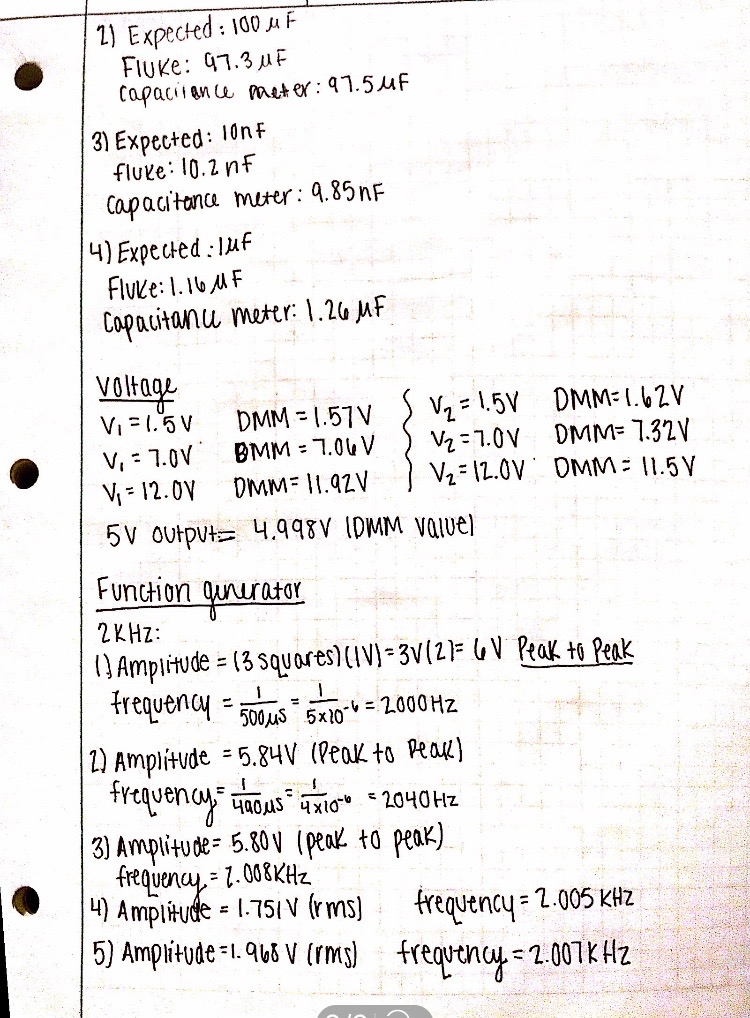 2) Expected: 100 μF
Fluke: 97.3 μF
Capacitance meter: 97.5 μF
3) Expected: 10nF
fluke: 10.2 nF
Capacitance meter: 9.85nF
4) Expected: 1μF
Fluke: 1.16 μF
Capacitance meter: 1.26 μF
Voltage
V₁ = 1.5V DMM = 1.57V V₂ = 1.5V DMM = 1.62V
V₁ = 7.0V DMM = 7.06V V₂ = 7.0V DMM = 7.32V
V₁ = 12.0V DMM = 11.92V V₂ = 12.0V DMM = 11.5V
5V output = 4.998V (DMM value)
Function generator
2KHz:
1) Amplitude = (3 squares)(1V) = 3V(2) = 6V Peak to Peak
frequency = 1/500μs = 1/5x10⁻⁶ = 2000Hz
2) Amplitude = 5.84V (Peak to Peak)
frequency = 1/490μs = 1/4x10⁻⁶ = 2040Hz
3) Amplitude = 5.80V (peak to peak)
frequency = 2.008KHz
4) Amplitude = 1.751V (rms) frequency = 2.005 KHz
5) Amplitude = 1.968 V (rms) frequency = 2.007KHz